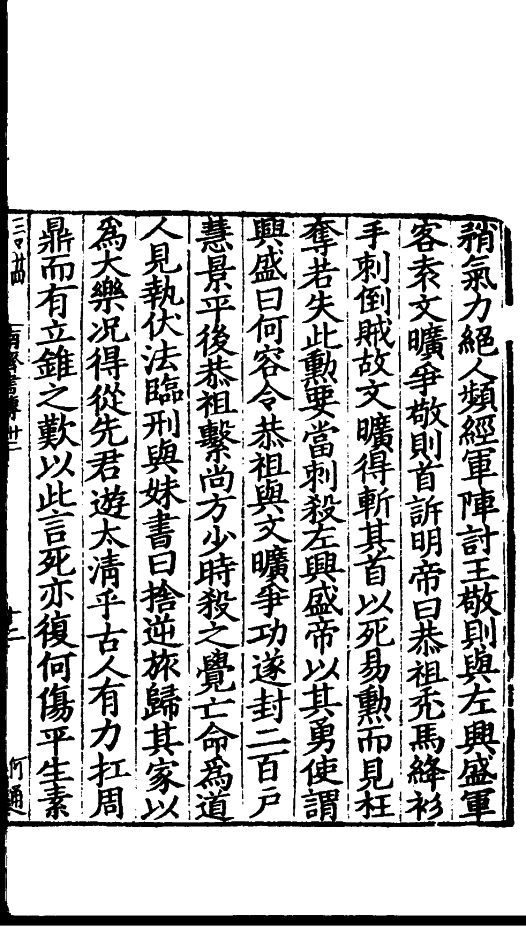 矟氣力絕人頻經軍陣討王敬則與左興盛軍
客袁文曠爭敬則首訴明帝曰恭祖禿馬絳衫
手刺倒賊故文曠得斬其首以死易勲而見枉
奪若失此勲要當刺殺左興盛帝以其勇使謂
興盛曰何容令恭祖與文曠爭功遂封二百戶
慧景平後恭祖繫尚方少時殺之覺亡命爲道
人見執伏法臨刑與妹書曰捨逆旅歸其家以
爲大樂况得從先君遊太清乎古人有力扛周
鼎而有立錐之歎以此言死亦復何傷平生素
南齊書傳卅二
十二
何通